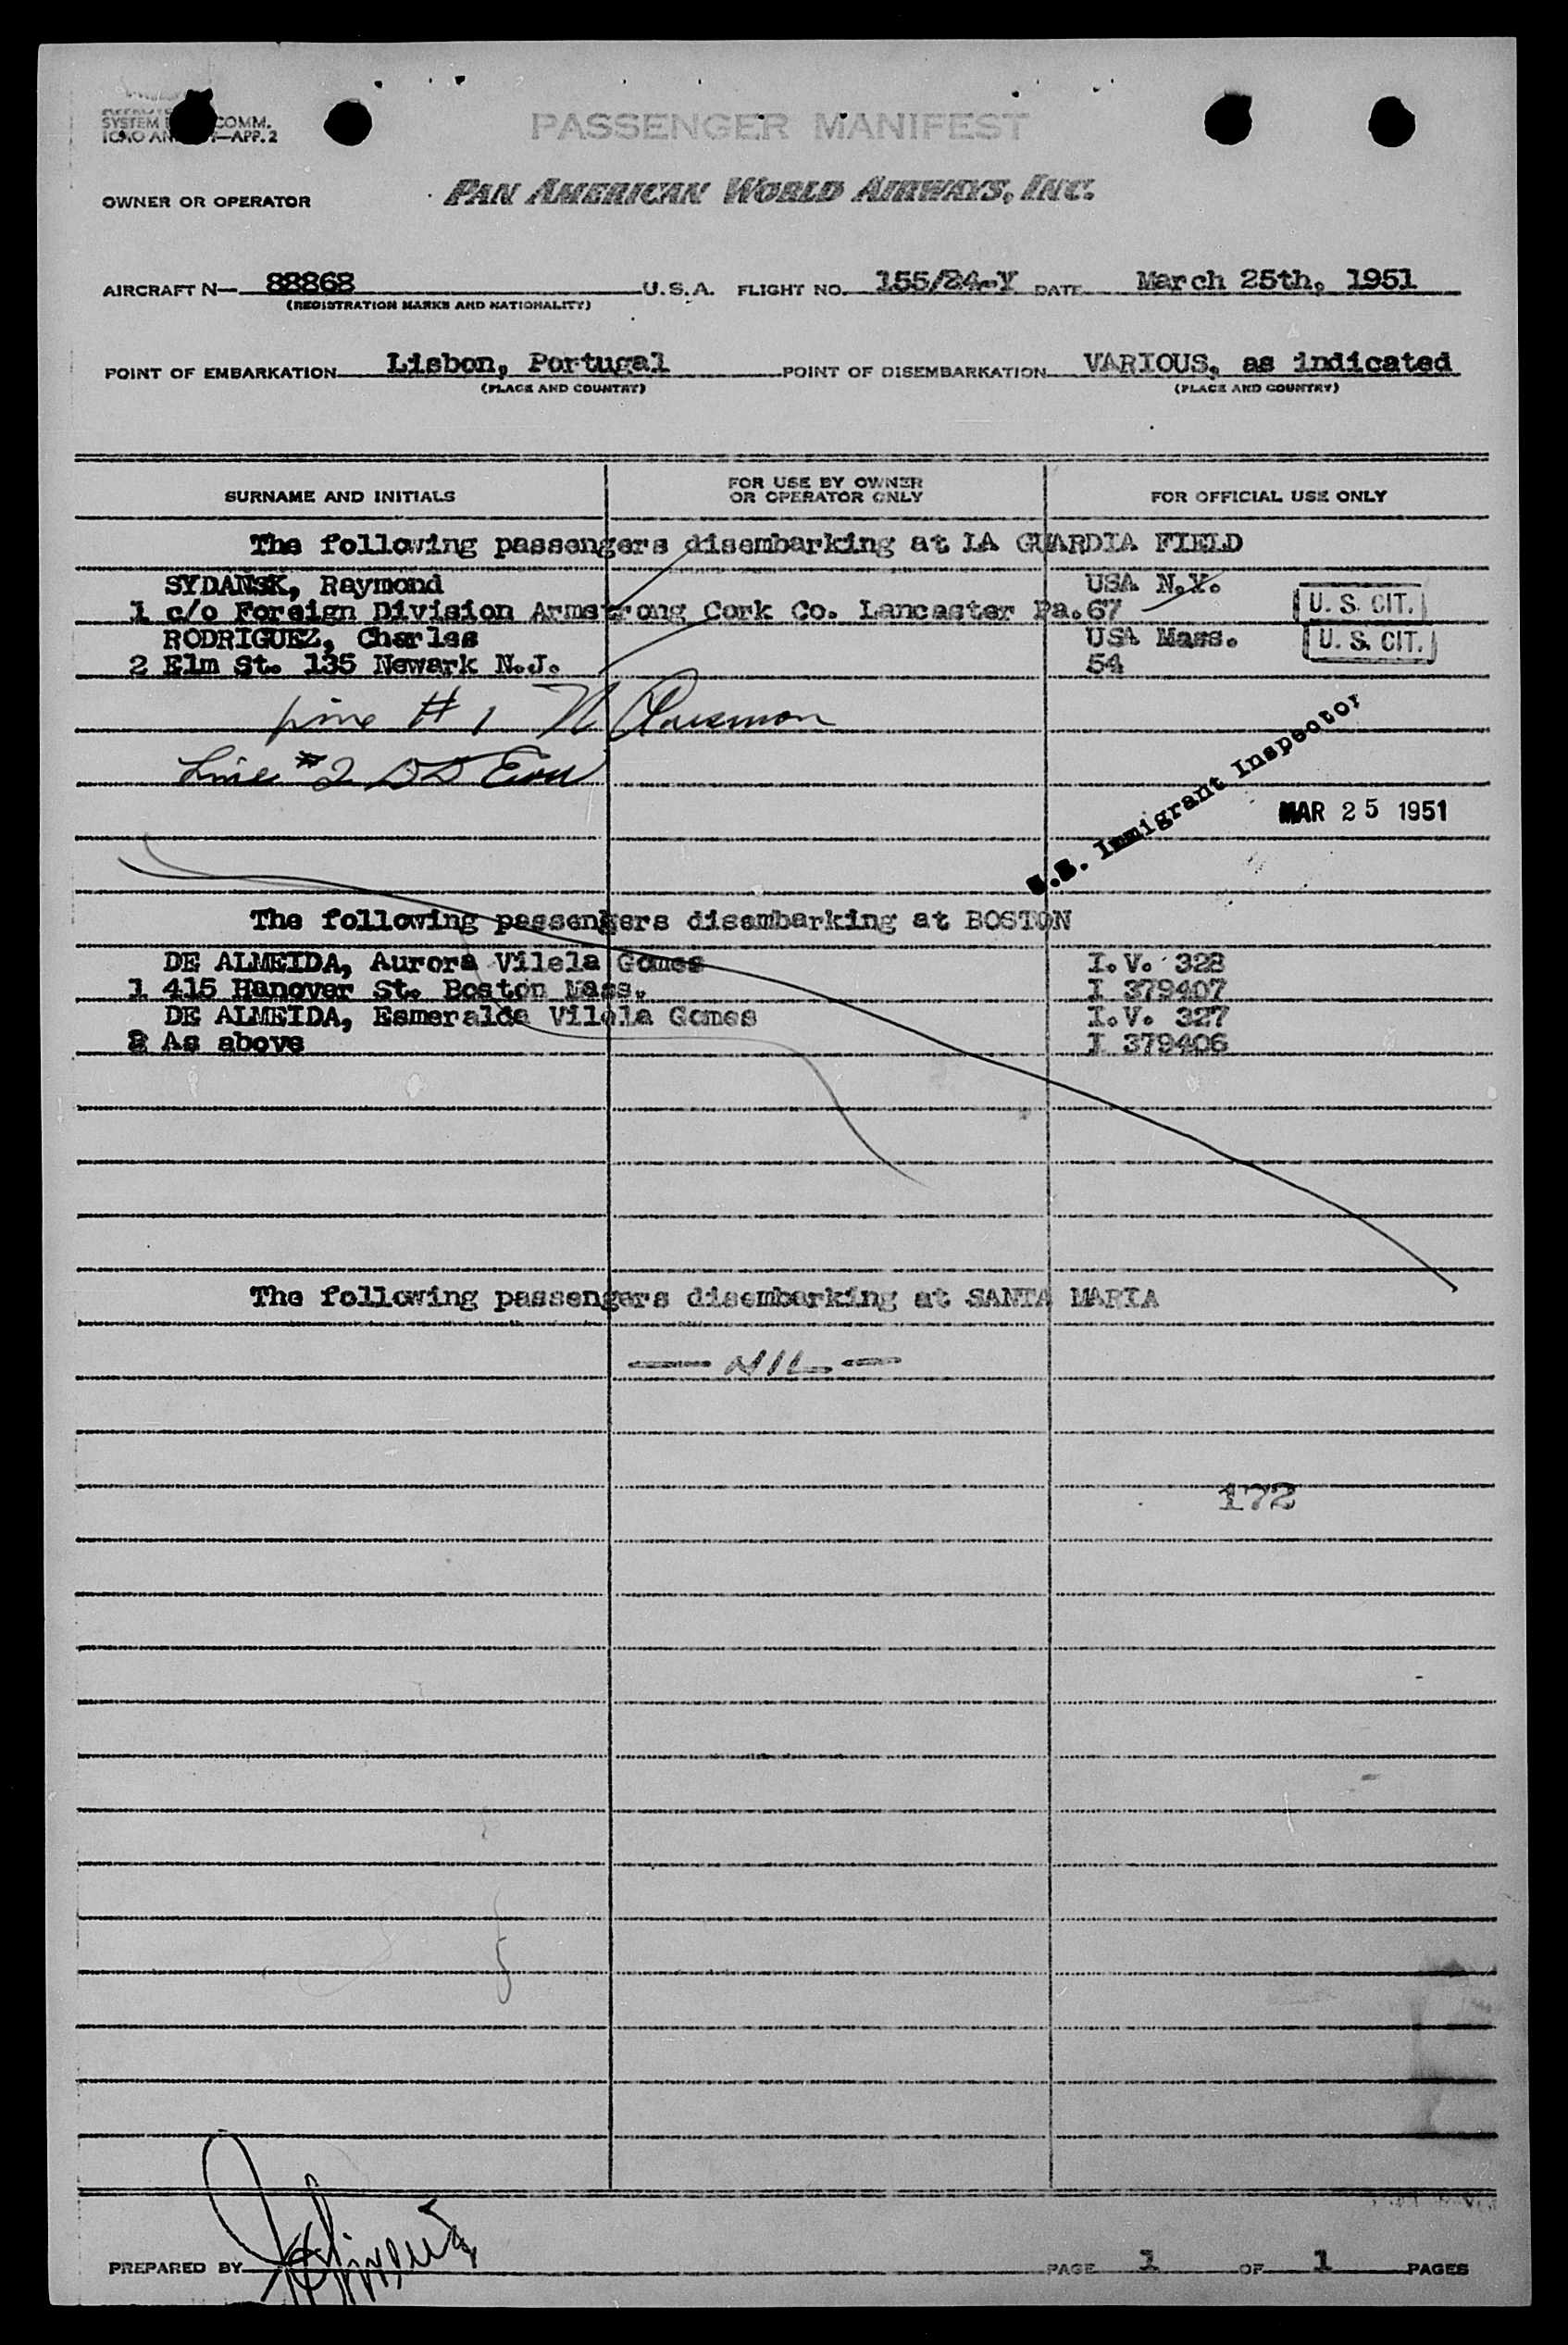 SYSTEM COMM.
ICAO AN —APP. 2
PASSENGER MANIFEST
OWNER OR OPERATOR PAN AMERICAN WORLD AIRWAYS, INC.
AIRCRAFT N— 88868 U.S.A. FLIGHT NO. 155/24-Y DATE March 25th, 1951
(REGISTRATION MARKS AND NATIONALITY)
POINT OF EMBARKATION Lisbon, Portugal POINT OF DISEMBARKATION VARIOUS, as indicated
(PLACE AND COUNTRY) (PLACE AND COUNTRY)
SURNAME AND INITIALS FOR USE BY OWNER OR OPERATOR ONLY FOR OFFICIAL USE ONLY
The following passengers disembarking at LA GUARDIA FIELD
SYDANSK, Raymond USA N.Y.
1 c/o Foreign Division Armstrong Cork Co. Lancaster Pa. 67 U. S. CIT.
RODRIGUEZ, Charles USA Mass. U. S. CIT.
2 Elm St. 135 Newark N.J. 54
Line # 1 N
Line #2 DD
U.S. Immigrant Inspector
MAR 25 1951
The following passengers disembarking at BOSTON
DE ALMEIDA, Aurora Vilela Gomes I.V. 328
1 415 Hanover St. Boston Mass. I 379407
DE ALMEIDA, Esmeralda Vilela Gomes I.V. 327
2 As above I 379406
The following passengers disembarking at SANTA MARIA
— NIL —
172
PREPARED BY PAGE 1 OF 1 PAGES